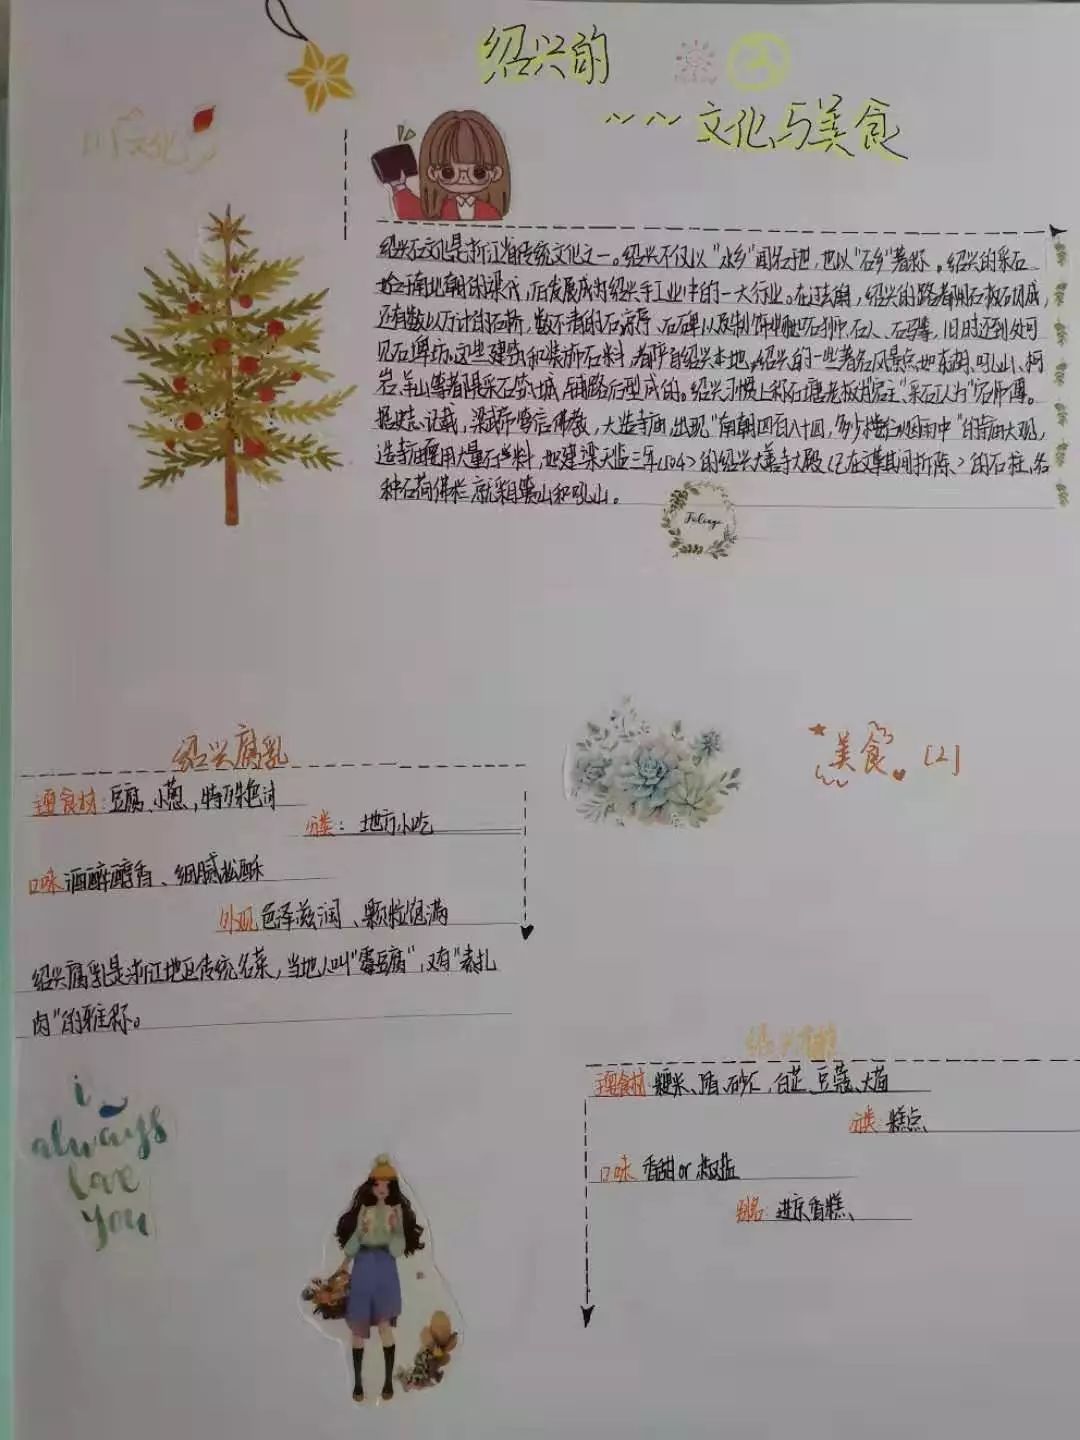 绍兴的
~~文化与美食
(1)文化
绍兴石文化是浙江省传统文化之一。绍兴不仅以"水乡"闻名于世,也以"石乡"著称。绍兴的采石
始于南北朝的梁代,后发展成为绍兴手工业中的一大行业。在过去,绍兴的路都用石板石砌成,
还有数以万计的石桥,数不清的石 石碑以及制作 石狮、石人、石马等,旧时还到处可
见石牌坊。这些建筑和装饰石料,都产自绍兴本地,绍兴的一些著名风景点如东湖、吼山、柯
岩、羊山等都是采石筑城、铺路后形成的。绍兴习惯上称石塘老板为"宕主",采石人为"宕师傅"。
据史志记载,梁武帝笃信佛教,大造寺庙,出现"南朝四百八十四,多少楼台烟雨中"的寺庙大观,
造寺庙要用大量石料,如建梁天监三年(504)的绍兴大善寺大殿(已在文革期间拆除)的石柱,各
种石 佛栏就采自 山和吼山。
美食 (2)
绍兴腐乳
主要食材:豆腐、小葱,特殊色汁
分类:地方小吃
口味 酒醉醇香、细腻松酥
外观 色泽滋润、颗粒饱满
绍兴腐乳是浙江地区传统名菜,当地人叫"霉豆腐",又有"素扎
肉"的雅称。
i
always
love
you
绍兴香糕
主要食材:粳米、 砂仁,白芷、豆蔻、大茴
分类:糕点
口味 香甜or椒盐
别名:进京香糕、